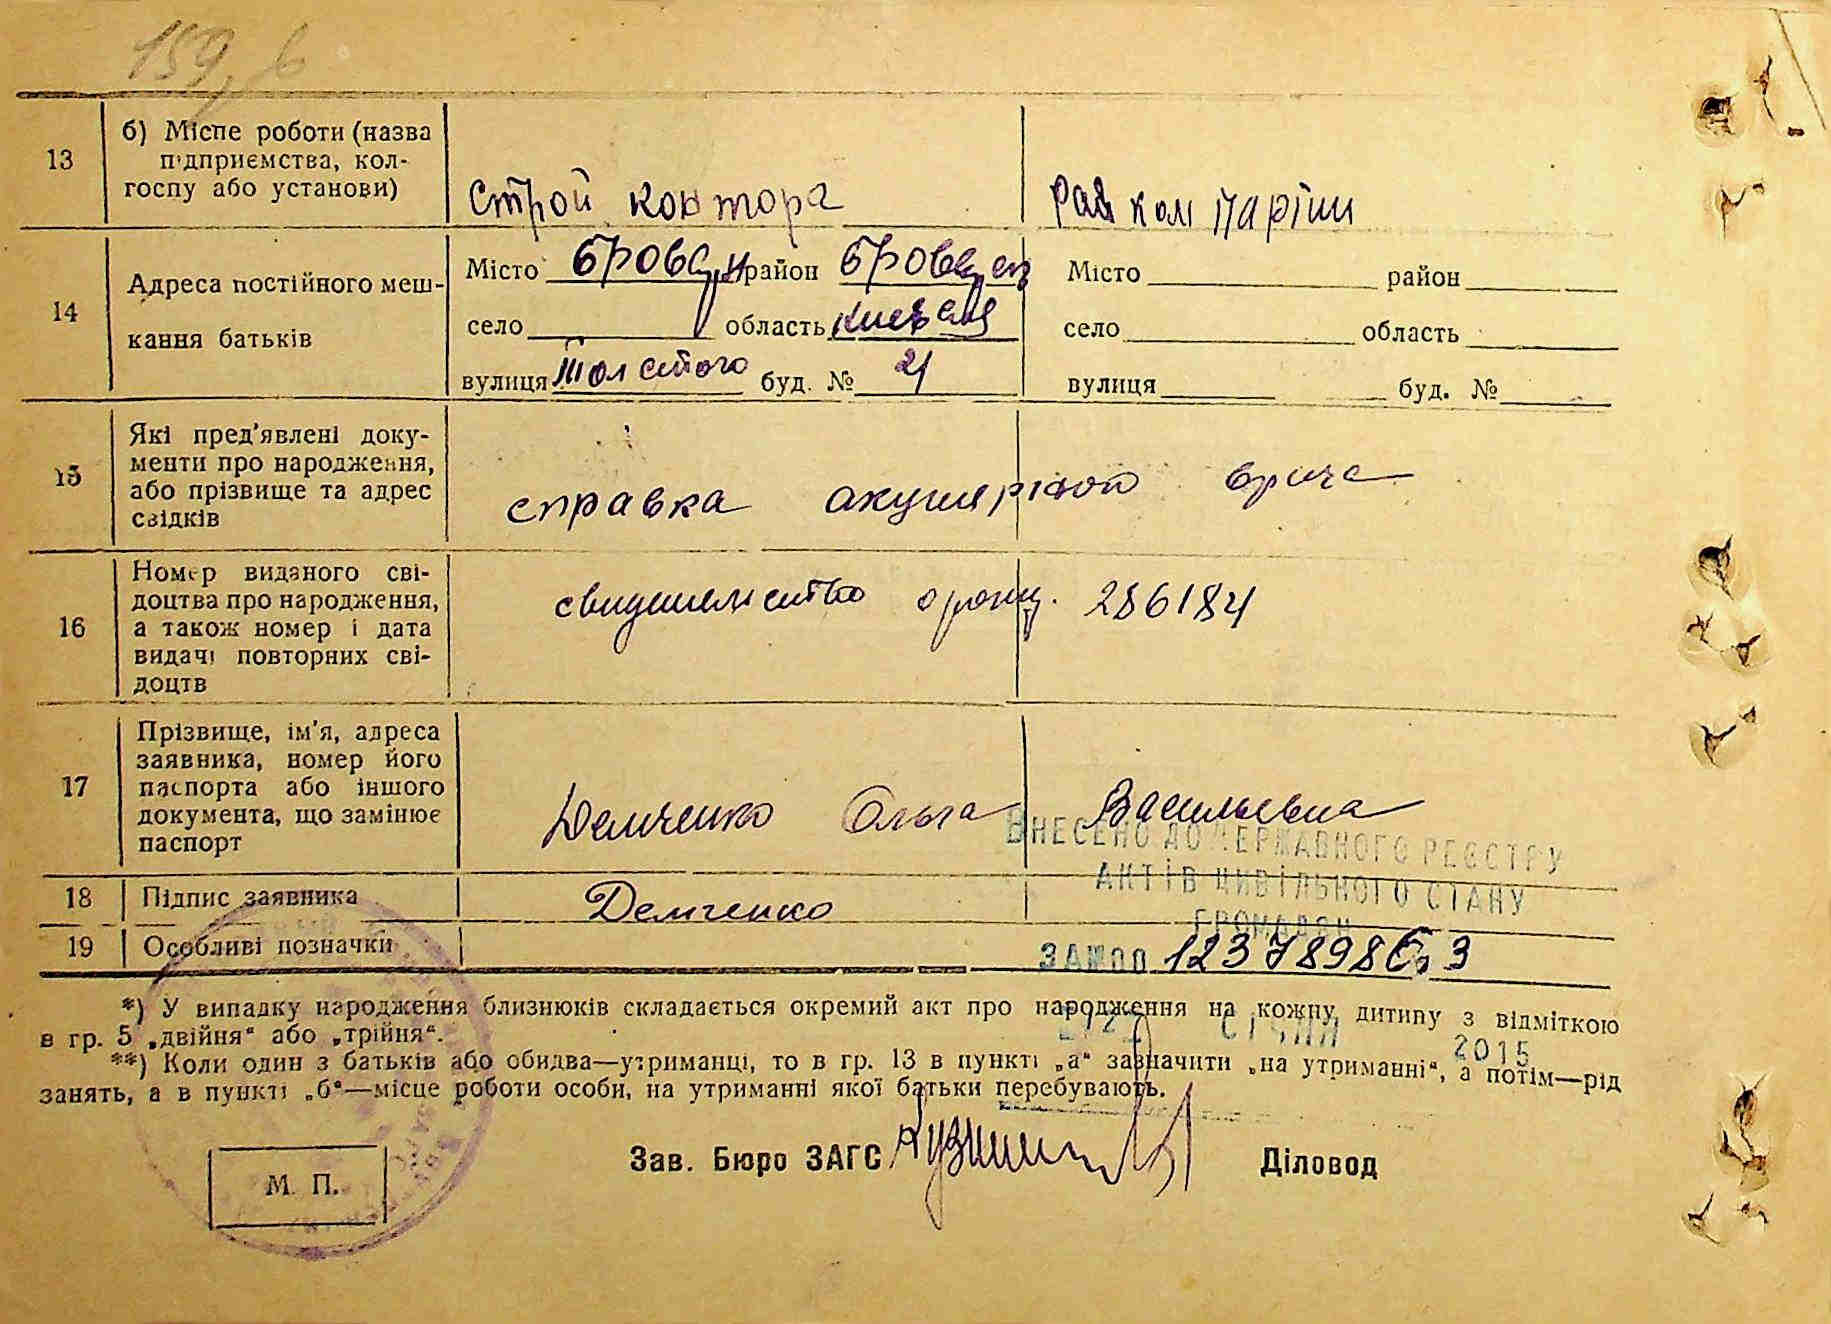 159
13
б) Місце роботи (назва
підприємства, кол-
госпу або установи)
Строй контора
Рай ком партии
14
Адреса постійного меш-
кання батьків
Місто Бровары район Бровар
село область Киевская
вулиця Толстого буд. № 21
Місто район
село область
вулиця буд. №
15
Які пред'явлені доку-
менти про народження,
або прізвище та адрес
свідків
справка врача
16
Номер виданого сві-
доцтва про народження,
а також номер і дата
видачі повторних сві-
доцтв
свидетельство о рожд. 286184
17
Прізвище, ім'я, адреса
заявника, номер його
паспорта або іншого
документа, що замінює
паспорт
Демченко Ольга Васильевна
18
Підпис заявника
Демченко
19
Особливі позначки
ВНЕСЕНО ДО ДЕРЖАВНОГО РЕЄСТРУ
АКТІВ ЦИВІЛЬНОГО СТАНУ
ГРОМАДЯН
*) У випадку народження близнюків складається окремий акт про народження на кожну дитину з відміткою
в гр. 5 „двійня“ або „трійня“.
СІЧНЯ 2015
**) Коли один з батьків або обидва—утриманці, то в гр. 13 в пункті „а“ зазначити „на утриманні“, а потім—рід
занять, а в пункті „б“—місце роботи особи, на утриманні якої батьки перебувають.
М. П.
Зав. Бюро ЗАГС
Діловод